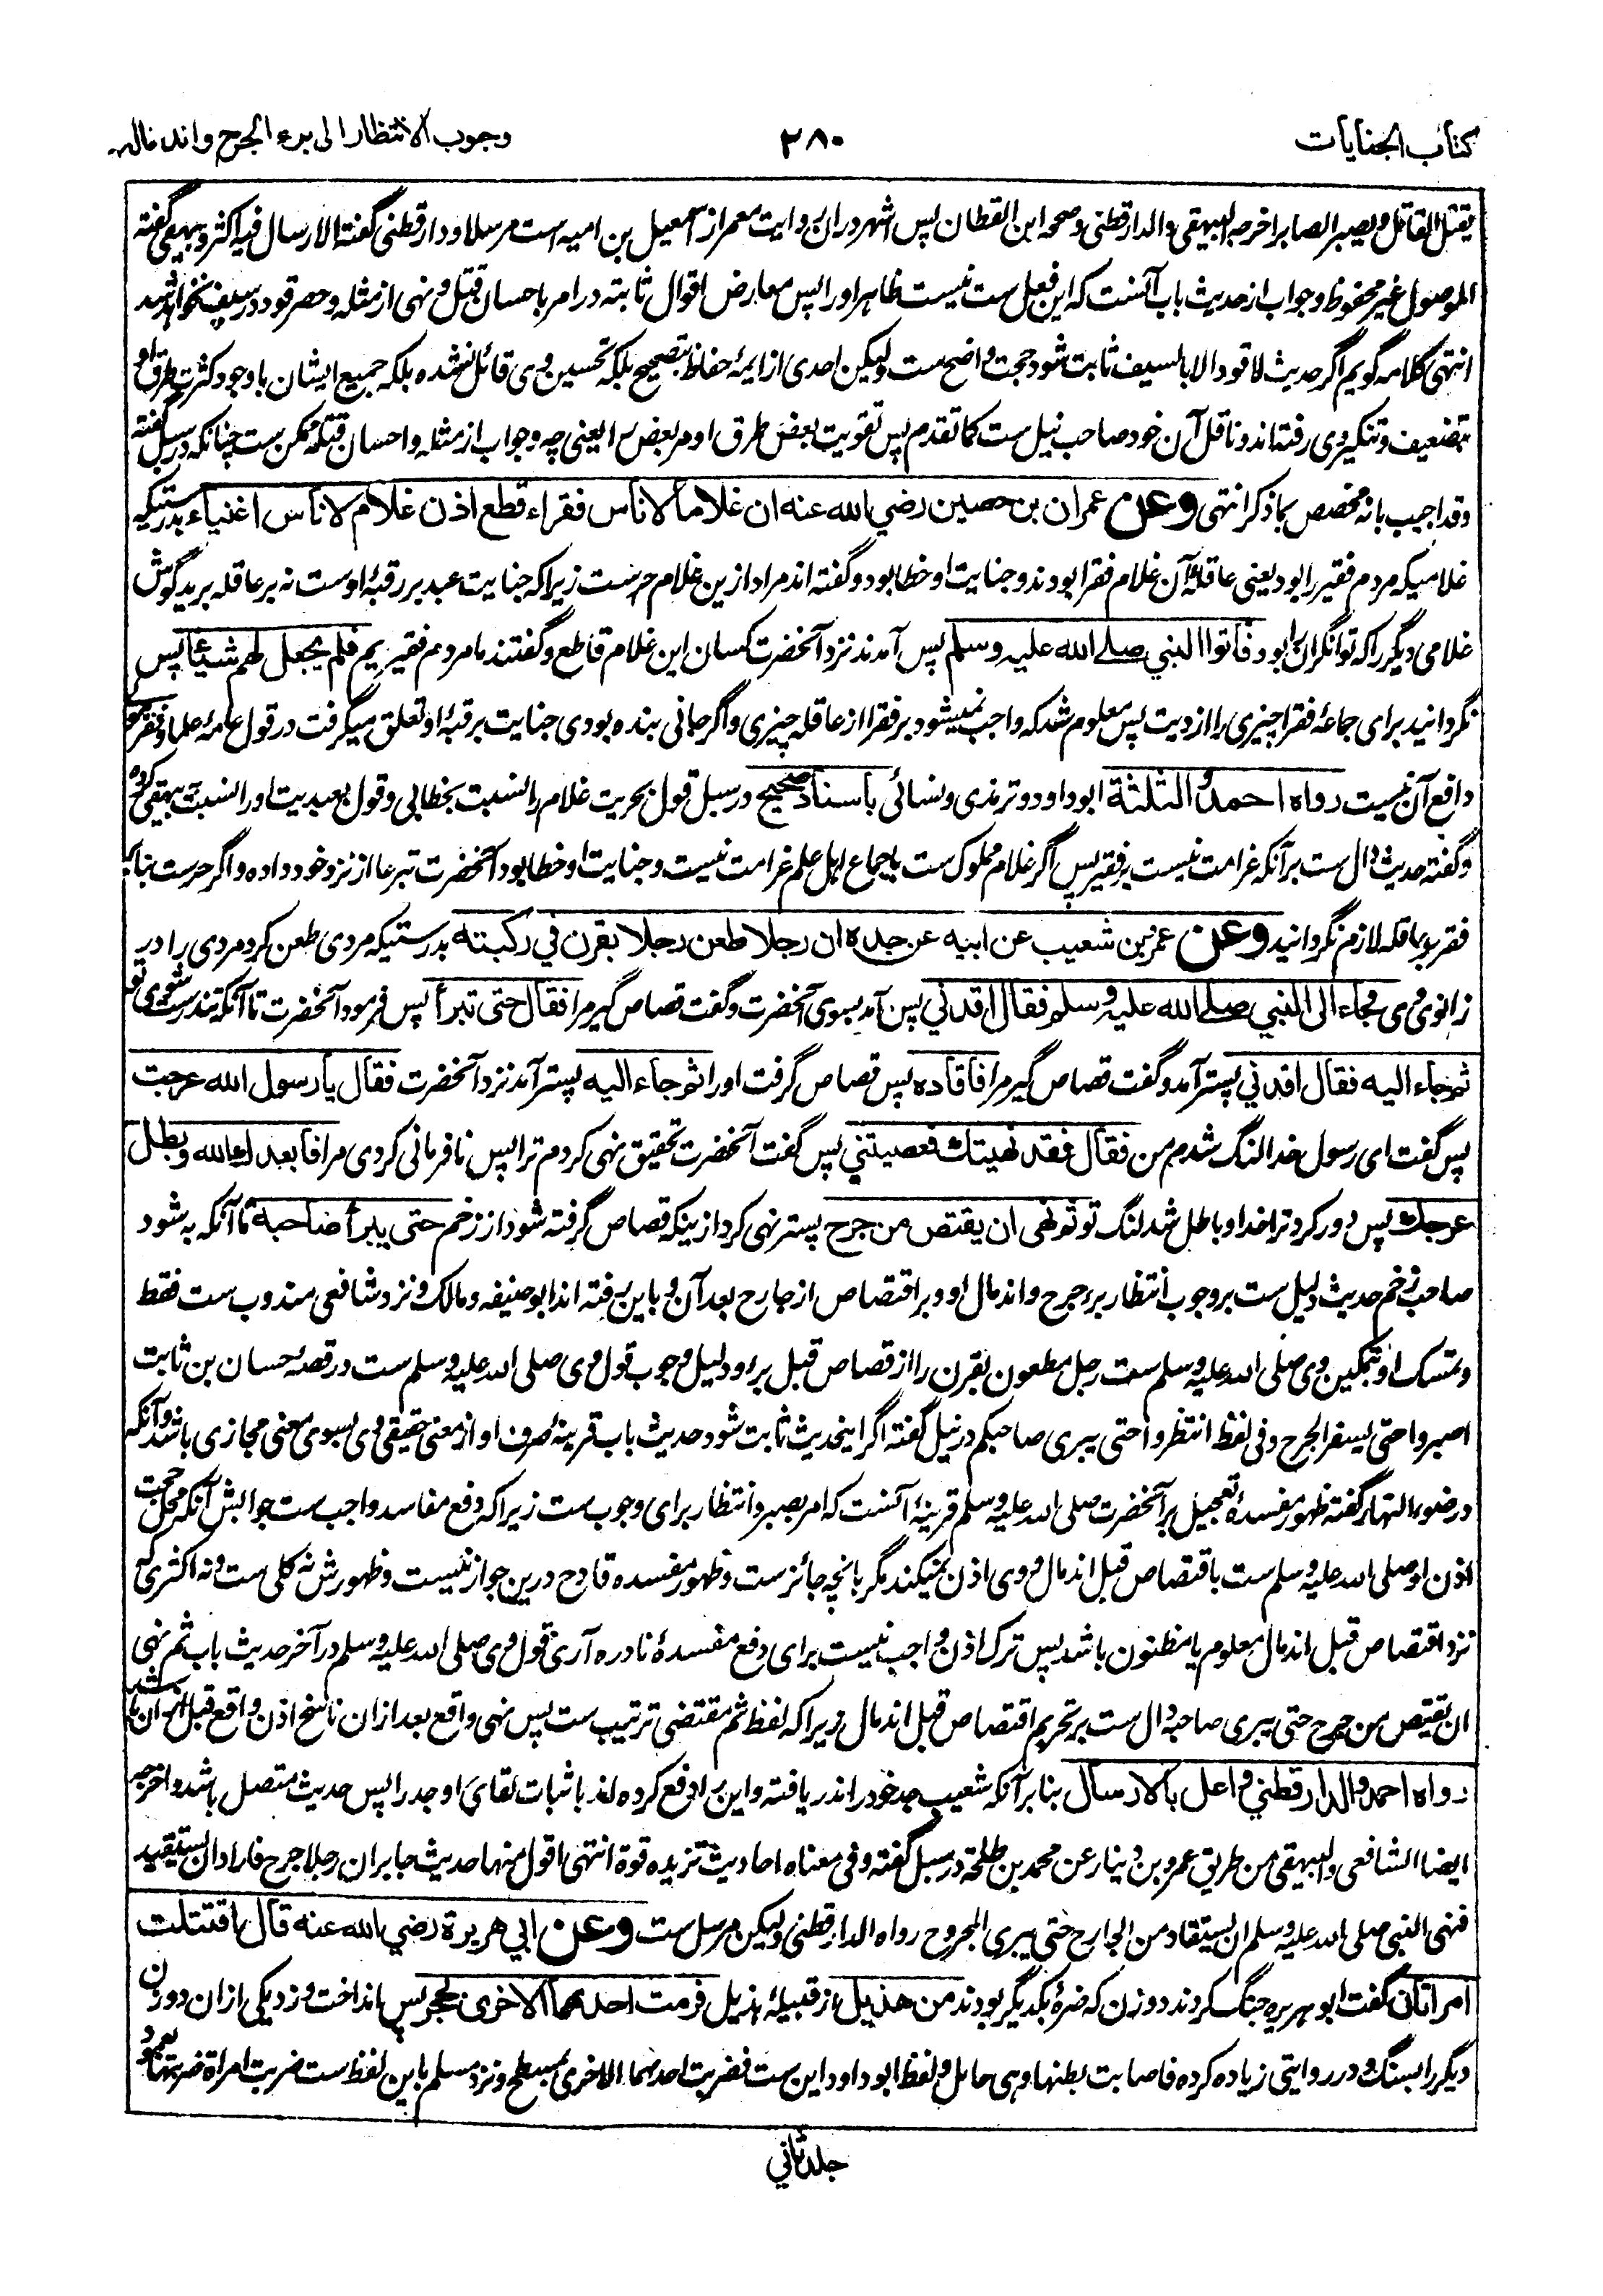 كتاب الجنايات
٢٨٠
وجوب الانتظار الى برء الجرح واندماله
يقتل القاتل ويصبر الصابر اخرجه البيهقي والدارقطني وصححه ابن القطان پس اشهر دران روايت معمر از اسمعيل بن اميه است مرسلا ودارقطني گفته الارسال فيه اكثر وبيهقي گفته
الموصول غير محفوظ وجواب از حديث باب آنست كه اين فعل ست نيست ظاهر او را پس معارض اقوال ثابته در امر باحسان قتل ونهى از مثله وحصر قود در سيف نخواهد شد
انتهى كلامه گويم اگر حديث لا قود الا بالسيف ثابت شود حجت واضح ست وليكن احدى از ايمهٔ حفاظ بتصحيح بلكه تحسين وى قائل نشده بلكه جميع ايشان با وجود كثرت طرق او
بتضعيف وتنكير وى رفته اند وناقل آن خود صاحب نيل ست كما تقدم پس تقويت بعض طرق او مر بعض را يعنى چه وجواب از مثله واحسان قتله ممكن ست چنانكه در سبل گفته
وقد اجيب بانه مخصص بما ذكر انتهى وعن عمران بن حصين رضي الله عنه ان غلاما لاناس فقراء قطع اذن غلام لاناس اغنياء بدرستيكه
غلاميكه مردم فقير را بود يعنى عاقلهٔ آن غلام فقرا بودند وجنايت او خطا بود وگفته اند مراد ازين غلام حرست زيراكه جنايت عبد بر رقبهٔ اوست نه بر عاقله بريد گوش
غلامى ديگر را كه توانگران را بود فاتوا النبي صلى الله عليه وسلم پس آمدند نزد آنحضرت كسان اين غلام قاطع وگفتند ما مردم فقيريم فلم يجعل لهم شيئا پس
نگردانيد براى جماعهٔ فقرا چيزى را از ديت پس معلوم شد كه واجب نميشود بر فقرا از عاقله چيزى واگر جانى بنده بودى جنايت برقبهٔ او تعلق ميگرفت در قول عامهٔ علما وفقر مولى
دافع آن نيست رواه احمد والثلثة ابوداود وترمذى ونسائى باسناد صحيح در سبل قول بحريت غلام را نسبت بخطابى وقول بعبديت او را نسبت ببيهقى كرده
وگفته حديث دال ست برآنكه غرامت نيست بر فقير پس اگر غلام مملوك ست باجماع اهل علم غرامت نيست وجنايت او خطا بود آنحضرت تبرعا از نزد خود داده واگر حرست بنابر
فقر بر عاقله لازم نگردانيد وعن عمرو بن شعيب عن ابيه عن جده ان رجلا طعن رجلا بقرن في ركبته بدرستيكه مردى طعن كرد مردى را در
زانوى وى فجاء الى النبي صلى الله عليه وسلم فقال اقدني پس آمد بسوى آنحضرت وگفت قصاص گير مرا فقال حتى تبرأ پس فرمود آنحضرت تا آنكه تندرست شوى تو
ثم جاء اليه فقال اقدني پستر آمد وگفت قصاص گير مرا فاقاده پس قصاص گرفت او را ثم جاء اليه پستر آمد نزد آنحضرت فقال يا رسول الله عرجت
پس گفت اى رسول خدا لنگ شدم من فقال قد نهيتك فعصيتني پس گفت آنحضرت تحقيق نهى كردم ترا پس نافرمانى كردى مرا فابعدك الله وبطل
عرجك پس دور كرد ترا خدا وباطل شد لنگ تو ثم نهى ان يقتص من جرح پستر نهى كرد ازينكه قصاص گرفته شود از زخم حتى يبرأ صاحبه تا آنكه به شود
صاحب زخم حديث دليل ست بر وجوب انتظار برء جرح واندمال او وبر اقتصاص از جارح بعد آن وباين رفته اند ابوحنيفه ومالك ونزد شافعى مندوب ست فقط
وتمسك او تمكين وى صلى الله عليه وسلم ست رجل مطعون بقرن را از قصاص قبل برء ودليل وجوب قول وى صلى الله عليه وسلم ست در قصهٔ حسان بن ثابت
اصبروا حتى يسفر الجرح وفى لفظ انتظروا حتى يبرى صاحبكم در نيل گفته اگر اينحديث ثابت شود حديث باب قرينهٔ صرف او از معنى حقيقى وى بسوى معنى مجازى باشد وآنكه
در ضوء النهار گفته ظهور مفسدهٔ تعجيل بر آنحضرت صلى الله عليه وسلم قرينهٔ آنست كه امر بصبر وانتظار براى وجوب ست زيراكه دفع مفاسد واجب ست جوابش آنكه محل حجت
اذن او صلى الله عليه وسلم ست باقتصاص قبل اندمال ووى اذن نميكند مگر بانچه جائزست وظهور مفسده قادح درين جواز نيست وظهورش نه كلى ست ونه اكثرى كه
نزد اقتصاص قبل اندمال معلوم يا مظنون باشد پس ترك اذن واجب نيست براى دفع مفسدهٔ نادره آرى قول وى صلى الله عليه وسلم در آخر حديث باب ثم نهى
ان يقتص من جرح حتى يبرى صاحبه دال ست بر تحريم اقتصاص قبل اندمال زيراكه لفظ ثم مقتضى ترتيب ست پس نهى واقع بعد ازان ناسخ اذن واقع قبل ازان باشد
رواه احمد والدارقطني واعل بالارسال بنابر آنكه شعيب جد خود را ندريافته واين را دفع كرده اند باثبات لقاى او جد را پس حديث متصل باشد واخرجه
ايضا الشافعى والبيهقى من طريق عمرو بن دينار عن محمد بن طلحة در سبل گفته وفى معناه احاديث تزيده قوة انتهى اقول منها حديث جابر ان رجلا جرح فاراد ان يستقيد
فنهى النبى صلى الله عليه وسلم ان يستقاد من الجارح حتى يبرى المجروح رواه الدارقطنى وليكن مرسل ست وعن ابي هريرة رضي الله عنه قال اقتتلت
امرأتان گفت ابوهريره جنگ كردند دو زن كه ضرهٔ يكديگر بودند من هذيل از قبيلهٔ هذيل فرمت احداهما الاخرى بحجر پس انداخت وزد يكى ازان دو زن
ديگر را بسنگ ودر روايتى زياده كرده فاصابت بطنها وهى حامل ولفظ ابوداود اين ست فضربت احدهما الاخرى بمسطح ونزد مسلم باين لفظ ست ضربت امرأة ضرتها بعمود
جلد ثاني